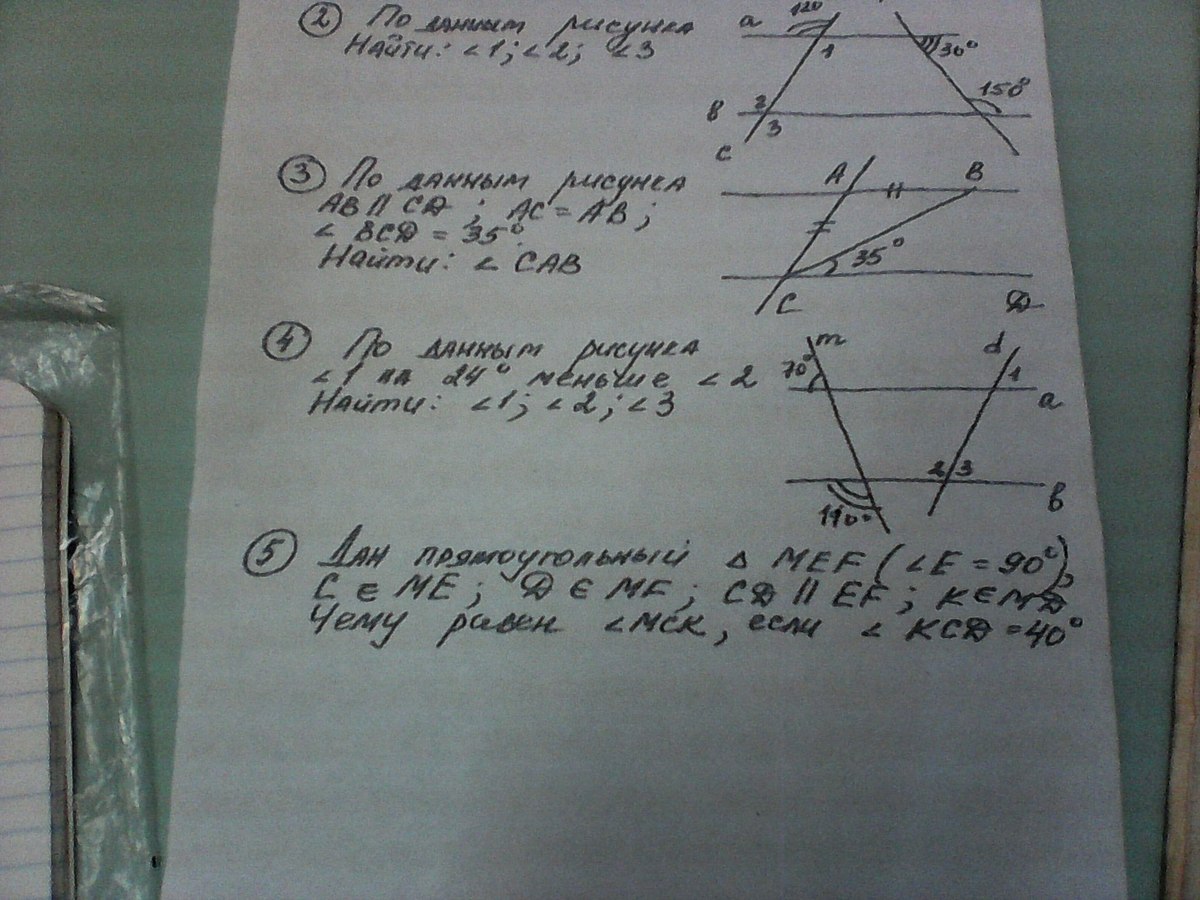 ② По данным рисунка
Найти: ∠1; ∠2; ∠3
a
120
1
30°
150°
в
2
3
с
③ По данным рисунка
AB ∥ CД; AC = AB;
∠ BCД = 35°.
Найти: ∠ CAB
A
B
35°
C
Д
④ По данным рисунка
∠1 на 24° меньше ∠2
Найти: ∠1; ∠2; ∠3
m
d
70°
1
a
2
3
в
110°
⑤ Дан прямоугольный △ MEF (∠E = 90°),
C ∈ ME; Д ∈ MF; CД ∥ EF; K ∈ MД
Чему равен ∠MCK, если ∠ KCД = 40°